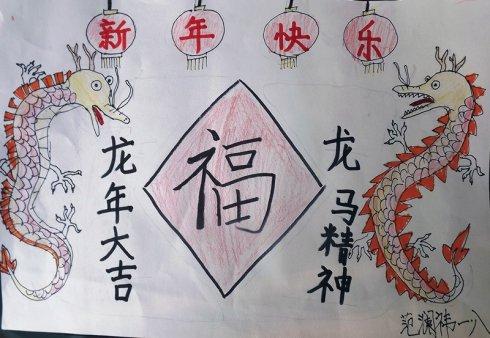 新年快乐
龙年大吉
福
龙马精神
范澜 一、八